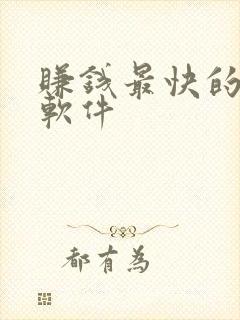 賺錢最快的
軟件
都有為